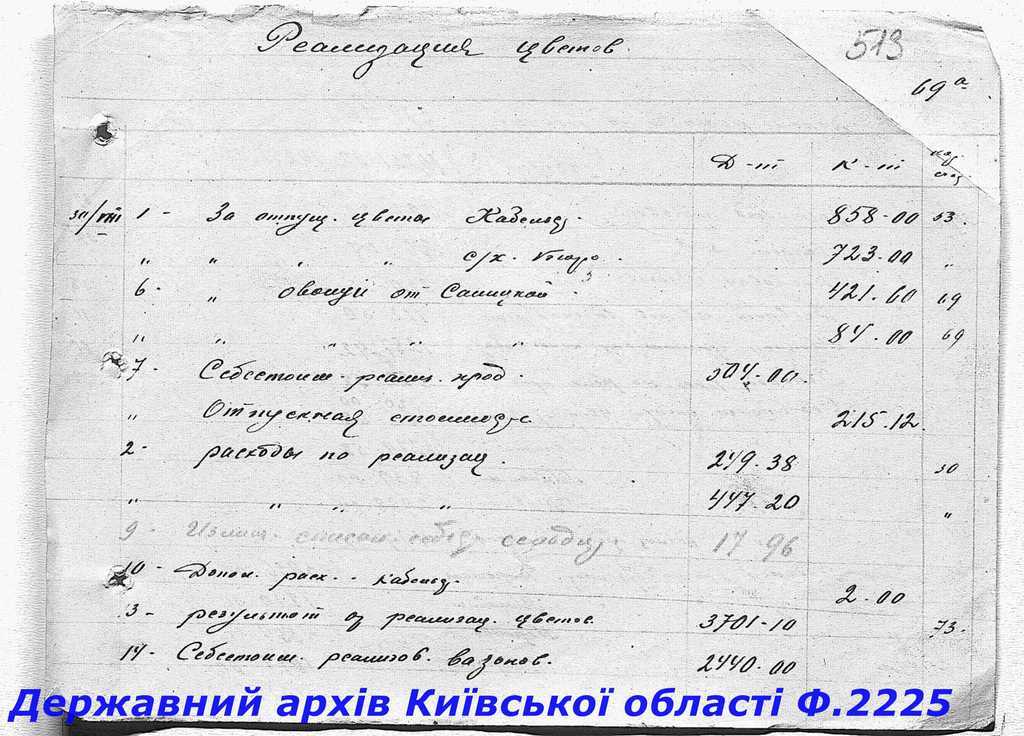 Реализация цветов.
513
69 а
Д-т К-т
30/VIII 1 - За отпущ. цветы 858-00 53.
" " " " с/х. 723.00 "
6 - " овощи от Салицкой 421.60 69
" " " " " 84.00 69
7 - Себестоим. реализ. прод. 504.00.
" Отпускная 215.12.
2 - расходы по реализац. 249.38 30
" " " " 447.20 "
9 - списан. 17 96
10 - Допол. расх. 2.00
3 - результат от реализац. цветов. 3701-10 73.
14 - Себестоим. реализов. вазонов. 2440.00
Державний архів Київської області Ф.2225